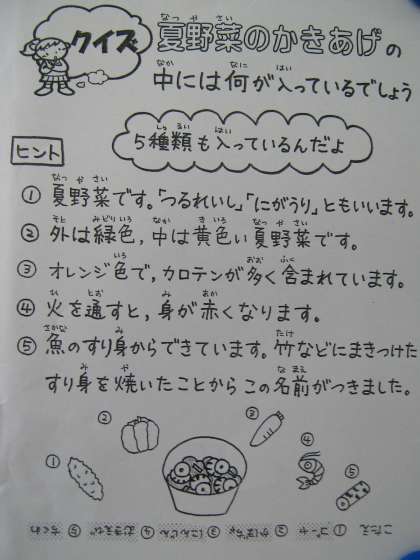 クイズ 夏野菜のかきあげの
中には何が入っているでしょう
5種類も入っているんだよ
ヒント
① 夏野菜です。「つるれいし」「にがうり」ともいいます。
② 外は緑色，中は黄色い夏野菜です。
③ オレンジ色で，カロテンが多く含まれています。
④ 火を通すと，身が赤くなります。
⑤ 魚のすり身からできています。竹などにまきつけた
すり身を焼いたことからこの名前がつきました。
② ③ ④ ① ⑤
こたえ ① ゴーヤ ② かぼちゃ ③ にんじん ④ むきえび ⑤ ちくわ